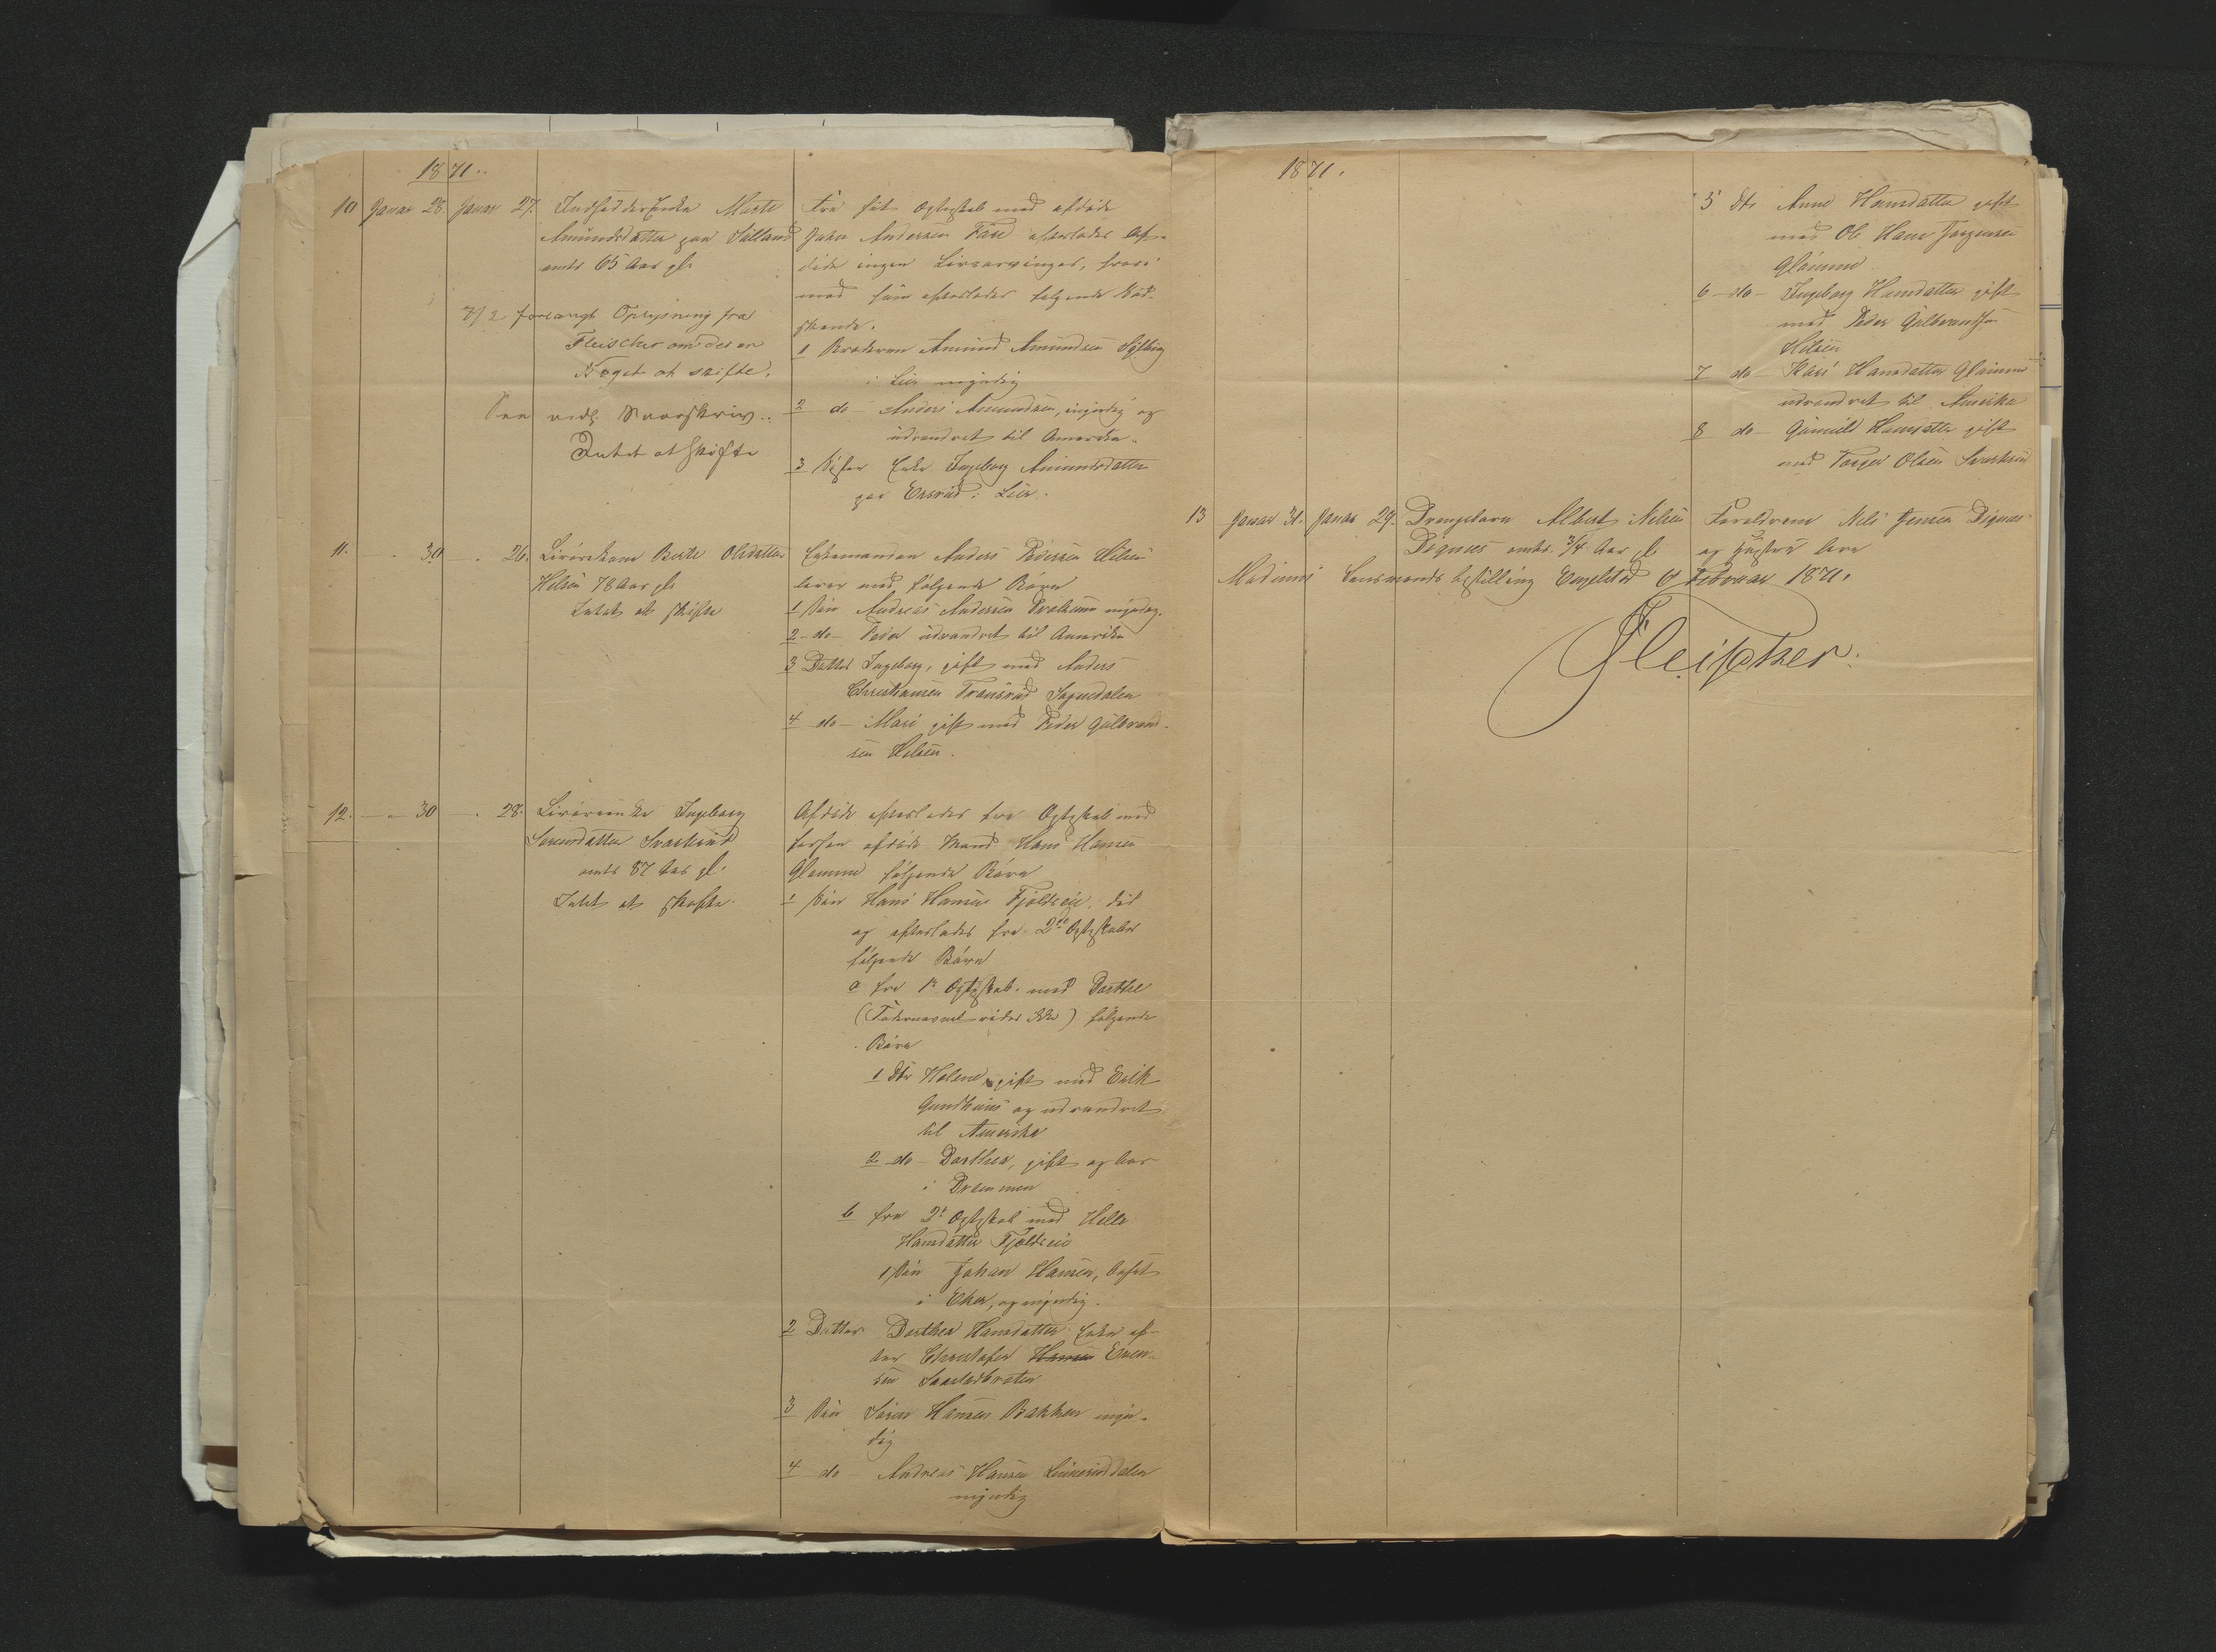 1871.
10 Januar 28. Januar 27. Indsidderenke Marte
Amundsdatter paa
omtr 65 Aar gl.
7/2 forlangt Oplysning fra
Fleischer om der er
Noget at skifte.
Intet at skifte
Fra sit Ægteskab med afdøde
John Andersen efterlader Af-
døde ingen Livsarvinger, hvori-
mod hun efterlader følgende Sød-
skende.
1 Broderen Amund Amundsen
i Lier myndig
2 do Anders Amundsen, myndig og
udvandret til Amerika.
3 Søster Enke Ingeborg Amundsdatter
paa i Lier.
11. - 30 - 26. Berte Olsdatter
Helsen 78 Aar gl.
Intet at skifte
Enkemanden Anders Pedersen Helsen
lever med følgende Børn
1 Søn Andreas Andersen myndig.
2 do Peder udvandret til Amerika
3 Datter Ingeborg, gift med Anders
Christiansen
4 do Mari gift med Peder Gulbrand-
sen Helsen.
12. - 30 - 28. Ingeborg
omtr 87 Aar gl.
Intet at skifte.
Afdøde efterlader fra Ægteskab med
forhen afdøde Mand Hans Hansen
Glamme følgende Børn
1 Søn Hans Hansen død
og efterlader fra 2de Ægteskaber
følgende Børn
a fra 1te Ægteskab med Dorthe
(Fadernavnet vides ikke) følgende
Børn
1 Dtr Helene, gift med Erik
og udvandret
til Amerika
2 do Dorthea, gift og bor
i Drammen
b fra 2det Ægteskab med Helle
Hansdatter
1 Søn Johan Hansen, bosat
i Eker, og myndig.
2 Datter Dorthea Hansdatter Enke ef-
ter Christofer Hansen Even-
sen
3 Søn Søren Hansen Bakken myn-
dig
4 do Andreas Hansen
myndig
1871.
5 Dtr Anne Hansdatter gift
med Ole Hans Jørgensen
Glamme
6 do Ingeborg Hansdatter gift
med Peder Gulbrandsen
Helsen
7 do Kari Hansdatter Glamme
udvandret til Amerika
8 do Gunild Hansdatter gift
med Torger Olsen
13 Januar 31. Januar 29. Drengebarn Albert Nilsen
Dignæs omtr. 3/4 Aar gl.
Forældrene Nils Jensen Dignæs
og Hustru leve
Modums Lensmands bestilling 6 Februar 1871.
Fleischer.